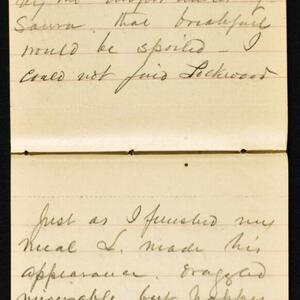 that breakfast
would be spoiled – I
could not find Lockwood
Just as I finished my
meal L. made his
appearance. Draggled
miserable but